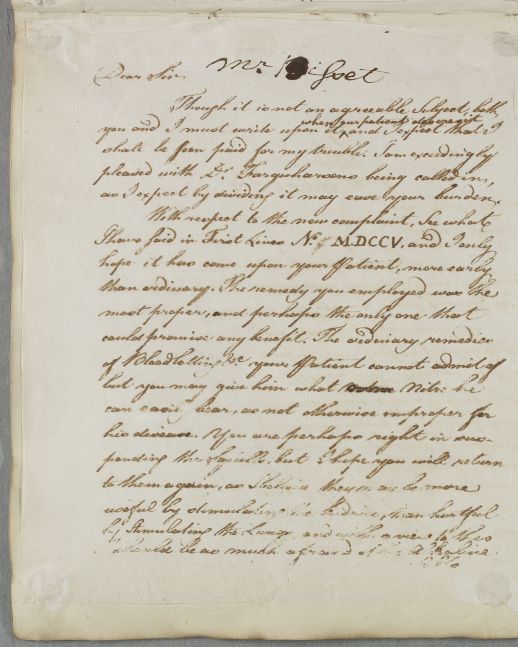 Dear Sir,
Mr Bisset
Though it is not an agreeable Subject, both
when our patients
you and I must write upon it, and I expect that I
shall be soon paid for my trouble. I am exceedingly
pleased with Dr. Farquharsons being called in,
as I expect by dividing it may ease your burden.
With respect to the new complaint, See what
I have said in First Lines No. MDCCV, and I only
hope it has come upon your Patient, more early
than ordinary. The remedy you employed was the
most proper, and perhaps the only one that
could promise any benefit. The ordinary remedies
of Bloodletting &c your Patient cannot admit of
but you may give him what Nitre he
can easily bear, as not otherwise improper for
his disease. You are perhaps right in sus-
pending the Squills, but I hope you will return
to them again, as I believe they may be more
useful by stimulating the Kidnies, than hurtful
by Stimulating the Lungs, and with a view to this
I should be as much afraid of the